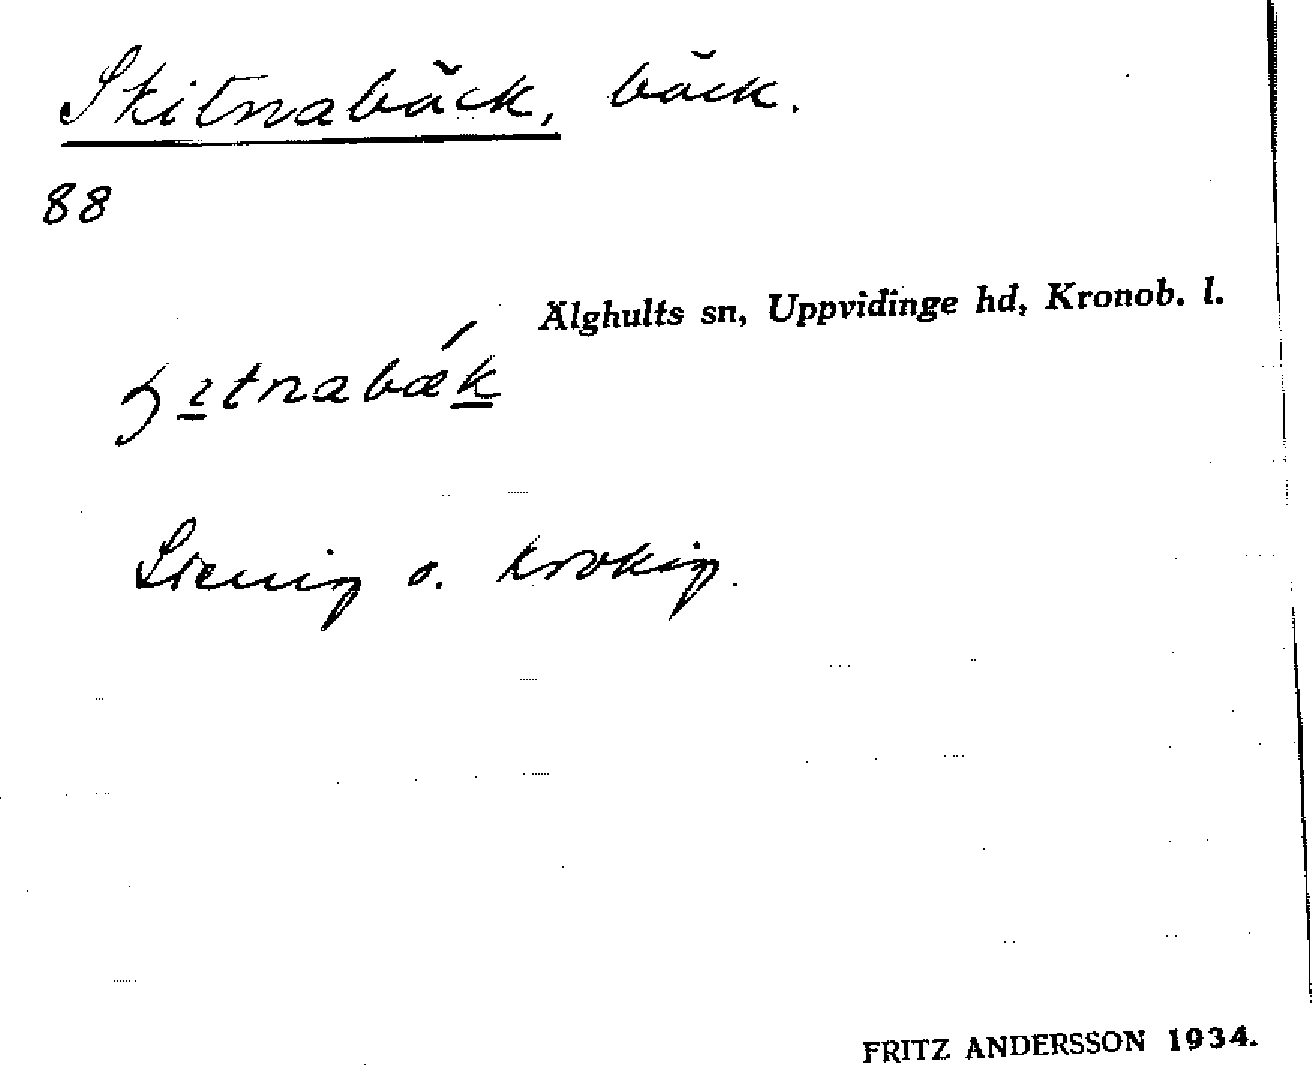 Skitnabäck, bäck.
88
Älghults sn, Uppvidinge hd, Kronob. l.
ɧɩtnabǽk
Stenig o. krokig.
FRITZ ANDERSSON 1934.